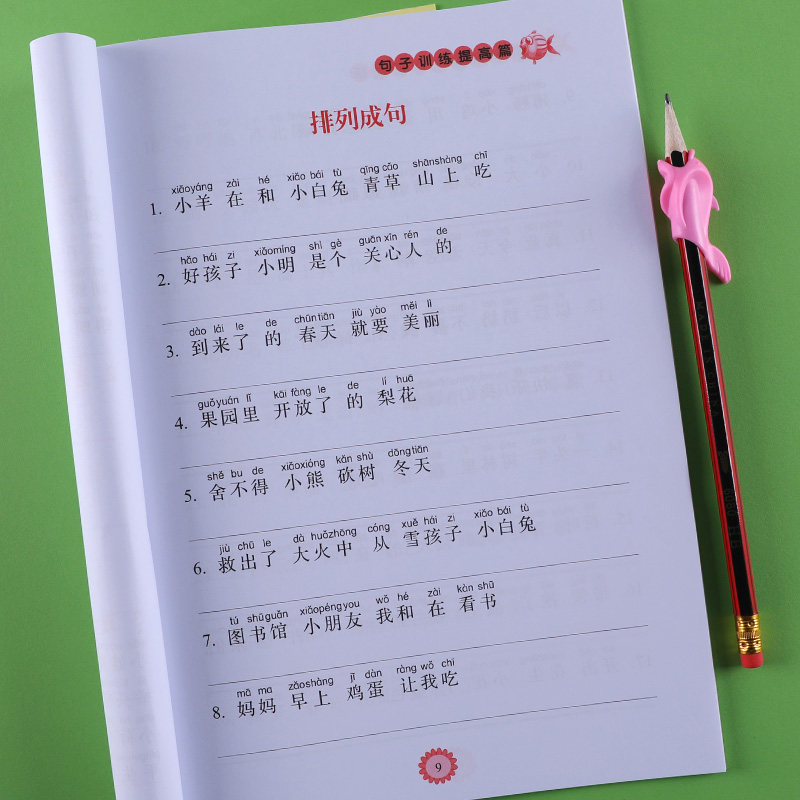 句子训练提高篇
排列成句
xiǎoyáng zài hé xiǎo bái tù qīng cǎo shānshàng chī
1. 小羊 在 和 小白兔 青草 山上 吃
hǎo hái zi xiǎomíng shì gè guān xīn rén de
2. 好孩子 小明 是个 关心人 的
dào lái le de chūntiān jiù yào měi lì
3. 到来了 的 春天 就要 美丽
guǒyuán lǐ kāi fàng le de lí huā
4. 果园里 开放了 的 梨花
shě bu de xiǎoxióng kǎn shù dōngtiān
5. 舍不得 小熊 砍树 冬天
jiù chū le dà huǒzhōng cóng xuě hái zi xiǎo bái tù
6. 救出了 大火中 从 雪孩子 小白兔
tú shūguǎn xiǎopéngyou wǒ hé zài kàn shū
7. 图书馆 小朋友 我和 在 看书
mā ma zǎoshàng jī dàn ràng wǒ chī
8. 妈妈 早上 鸡蛋 让我吃
9